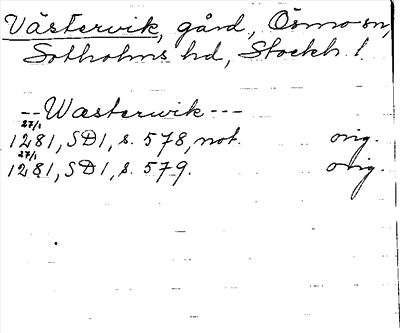 Västervik, gård, Ösmo sn,
Sotholms hd, Stockh. l.
--Wasterwik---
27/1
1281, SD1, s. 578, not. orig.
27/1
1281, SD1, s. 579. orig.